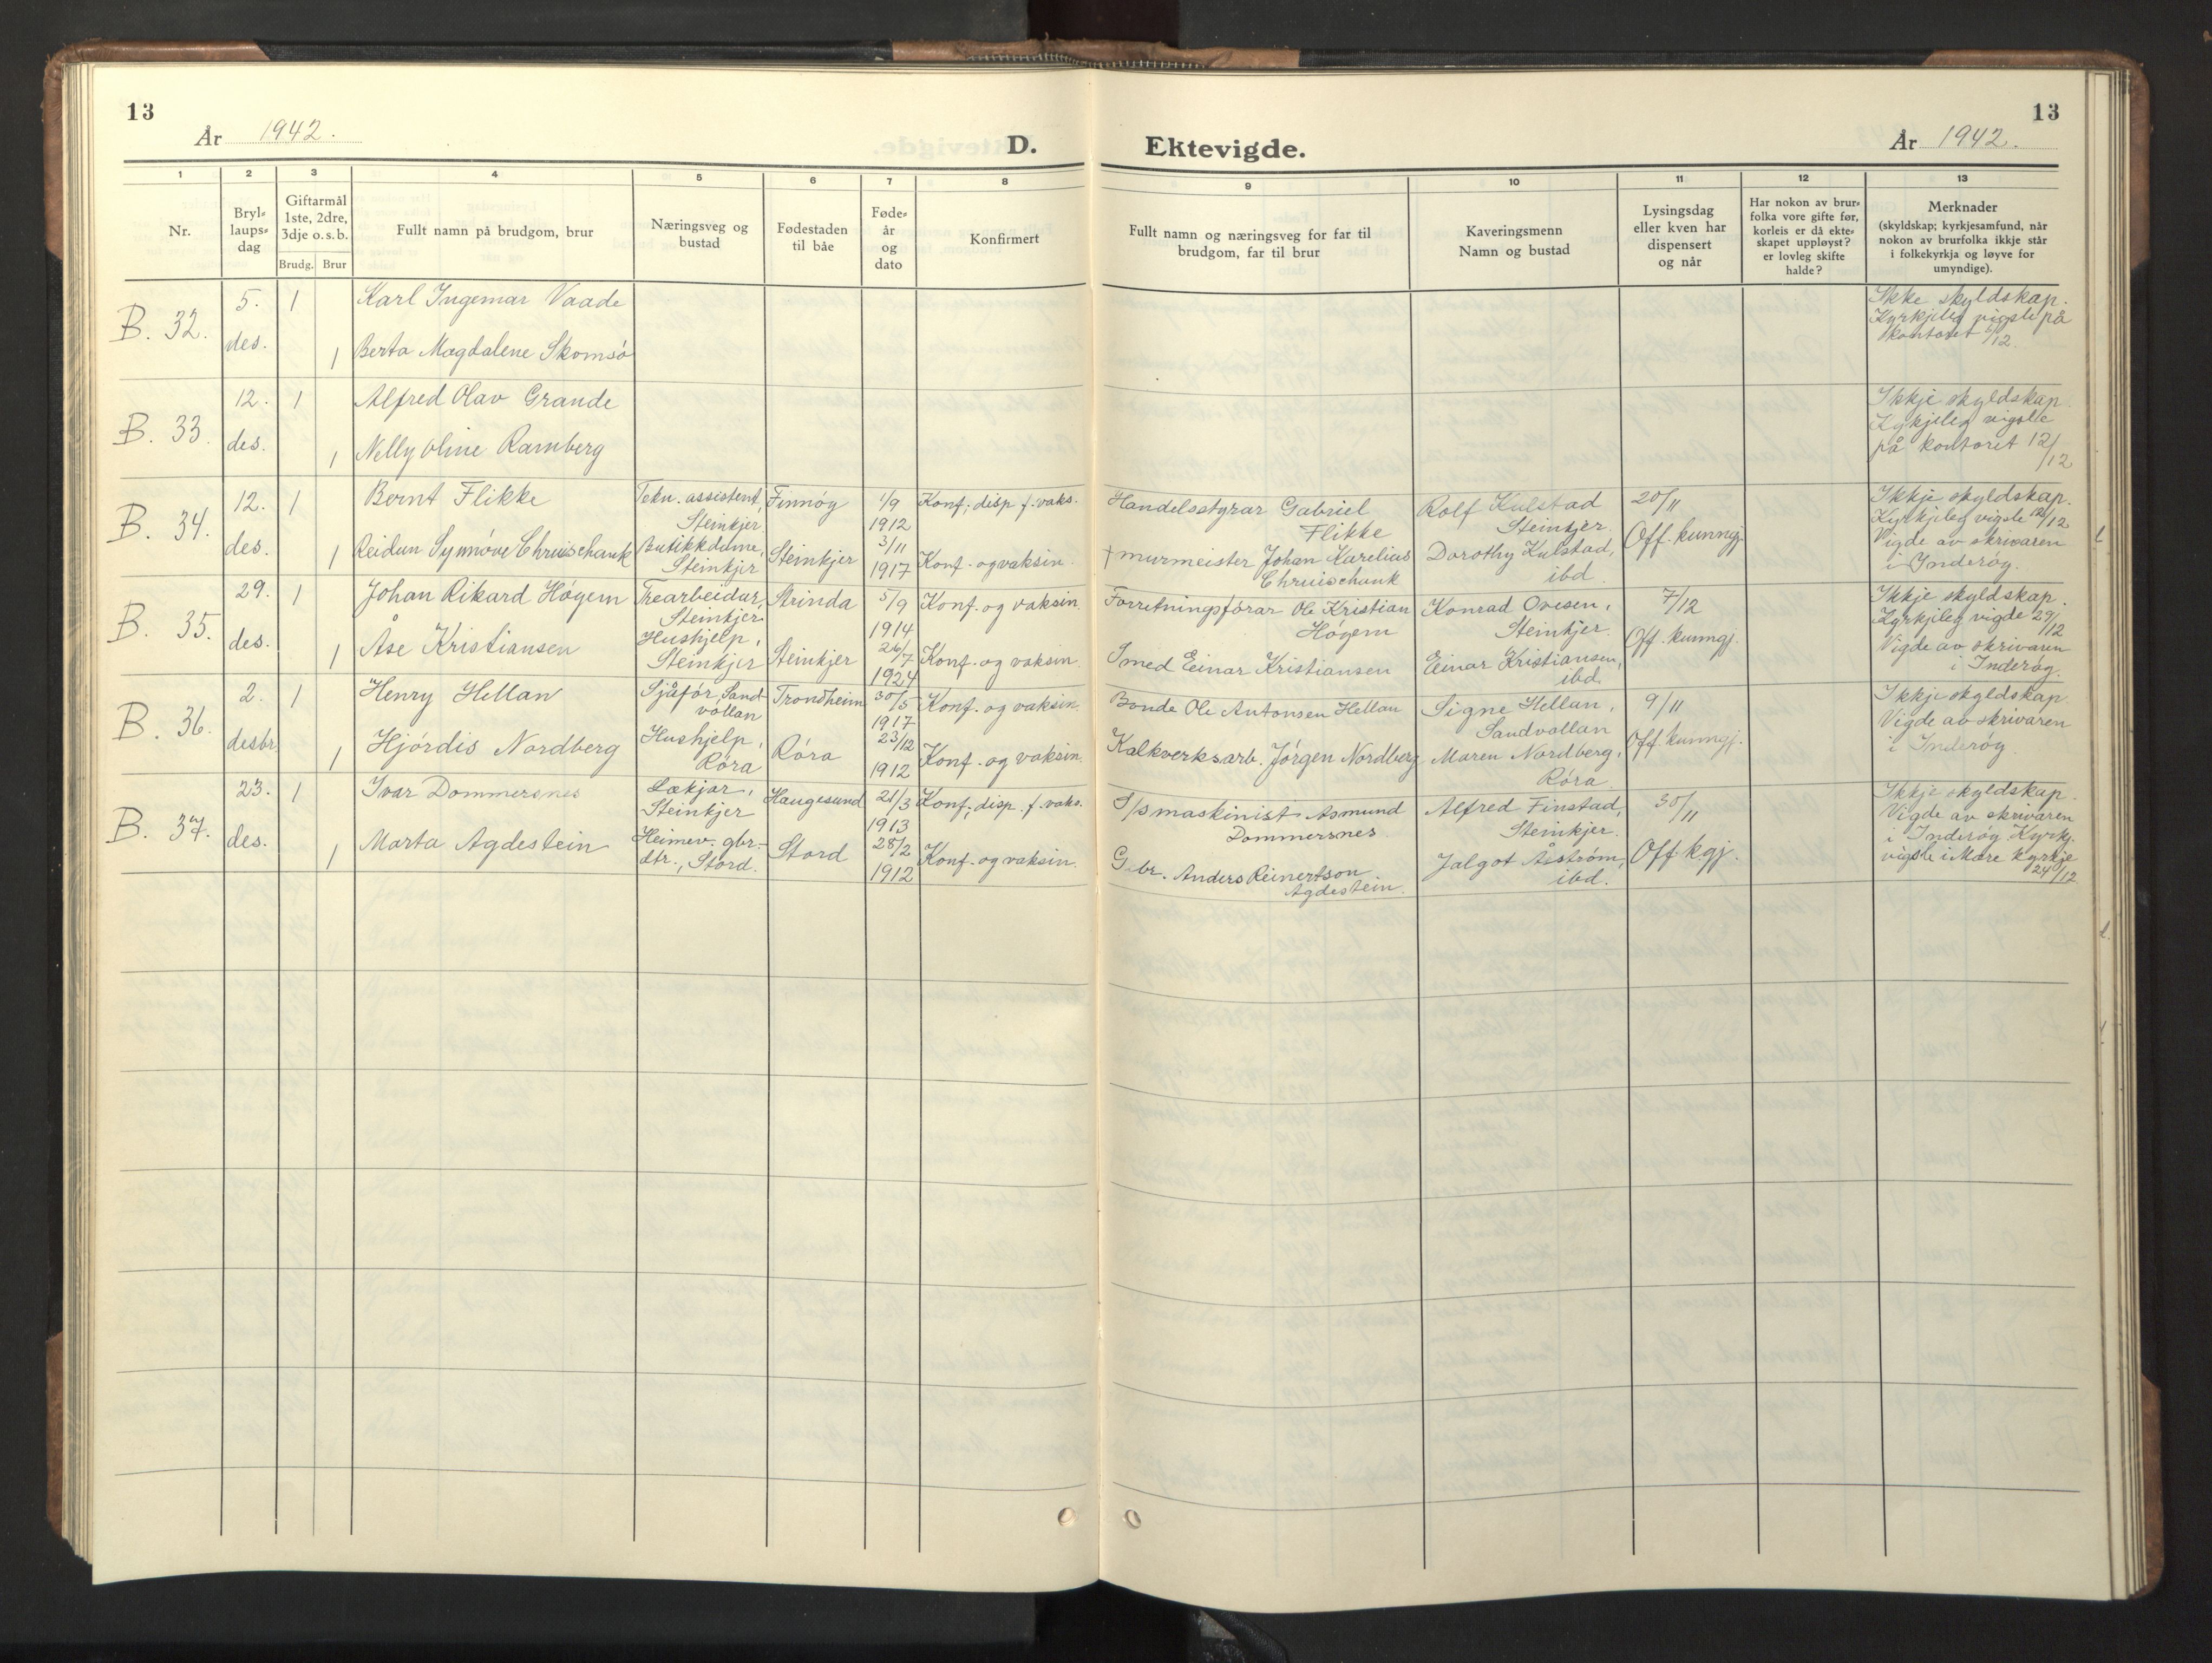 13
År 1942.
D.
Ektevigde.
År 1942.
13
1 2 3 4 5 6 7 8 9 10 11 12 13
Nr.
Bryl-
laups-
dag
Giftarmål
1ste, 2dre,
3dje o. s. b.
Brudg. Brur
Fullt namn på brudgom, brur
Næringsveg og
bustad
Fødestaden
til båe
Føde-
år
og
dato
Konfirmert
Fullt namn og næringsveg for far til
brudgom, far til brur
Kaveringsmenn
Namn og bustad
Lysingsdag
eller kven har
dispensert
og når
Har nokon av brur-
folka vore gifte før,
korleis er då ekte-
skapet uppløyst?
er lovleg skifte
halde?
Merknader
(skyldskap; kyrkjesamfund, når
nokon av brurfolka ikkje står
i folkekyrkja og løyve for
umyndige).
B. 32.
5.
des.
1
Karl Ingemar Vaade
1
Berta Magdalene Skomsö
Ikke skyldskap.
Kyrkjeleg vigsle på
kontoret 5/12.
B. 33.
12.
des.
1
Alfred Olav Grande
1
Nelly Oline Ramberg
Ikkje skyldskap.
Kyrkjeleg vigsle
på kontoret 12/12
B. 34.
12.
des.
1
Bernt Flikke
Tekn. assistent,
Steinkjer
Finnög
1/9
1912
Konf; disp. f. vaks.
Handelsstyrar Gabriel
Flikke
Rolf Kulstad
Steinkjer.
20/11
Off. kunngj.
1
Reidun Synnöve Chruischank
Butikkdame,
Steinkjer
Steinkjer
3/11
1917
Konf. og vaksin.
† murmeister Johan Karelius
Chruischank
Dorothy Kulstad,
ibd.
Ikkje skyldskap.
Kyrkjeleg vigsle 12/12
Vigde av skrivaren
i Inderöy.
B. 35.
29.
des.
1
Johan Rikard Högem
Trearbeidar,
Steinkjer
Strinda
5/9
1914
Konf. og vaksin.
Forretningsförar Ole Kristian
Högem
Konrad Ovesen,
Steinkjer.
7/12
Off. kunngj.
1
Åse Kristiansen
Hushjelp,
Steinkjer
Steinkjer
26/7
1924
Konf. og vaksin.
Smed Einar Kristiansen
Einar Kristiansen,
ibd.
Ikkje skyldskap.
Kyrkjeleg vigde 29/12
Vigde av skrivaren
i Inderöy.
B. 36.
2.
desbr
1
Henry Hellan
Sjåför, Sand-
vollan
Trondheim
30/5
1917
Konf. og vaksin.
Bonde Ole Antonsen Hellan
Signe Hellan,
Sandvollan
9/11
Off. kunngj.
1
Hjördis Nordberg
Hushjelp,
Röra
Röra
23/12
1912
Konf. og vaksin.
Kalkverksarb. Jörgen Nordberg
Maren Nordberg,
Röra.
Ikkje skyldskap
Vigde av skrivaren
i Inderöy.
B. 37.
23.
des.
1
Ivar Dommersnes
Lækjar,
Steinkjer
Haugesund
21/3
1913
Konf; disp. f. vaks.
S/s maskinist Asmund
Dommersnes.
Alfred Finstad,
Steinkjer.
30/11
Off. kgj.
1
Marta Agdestein
Heimev. gbr.-
dtr., Stord.
Stord
28/2
1912
Konf. og vaksin.
Gbr. Anders Reinertson
Agdestein.
Jalgot Åström,
ibd.
Ikkje skyldskap.
Vigde av skrivaren
i Inderöy Kyrkj.
vigsle i Mære Kyrkje
24/12